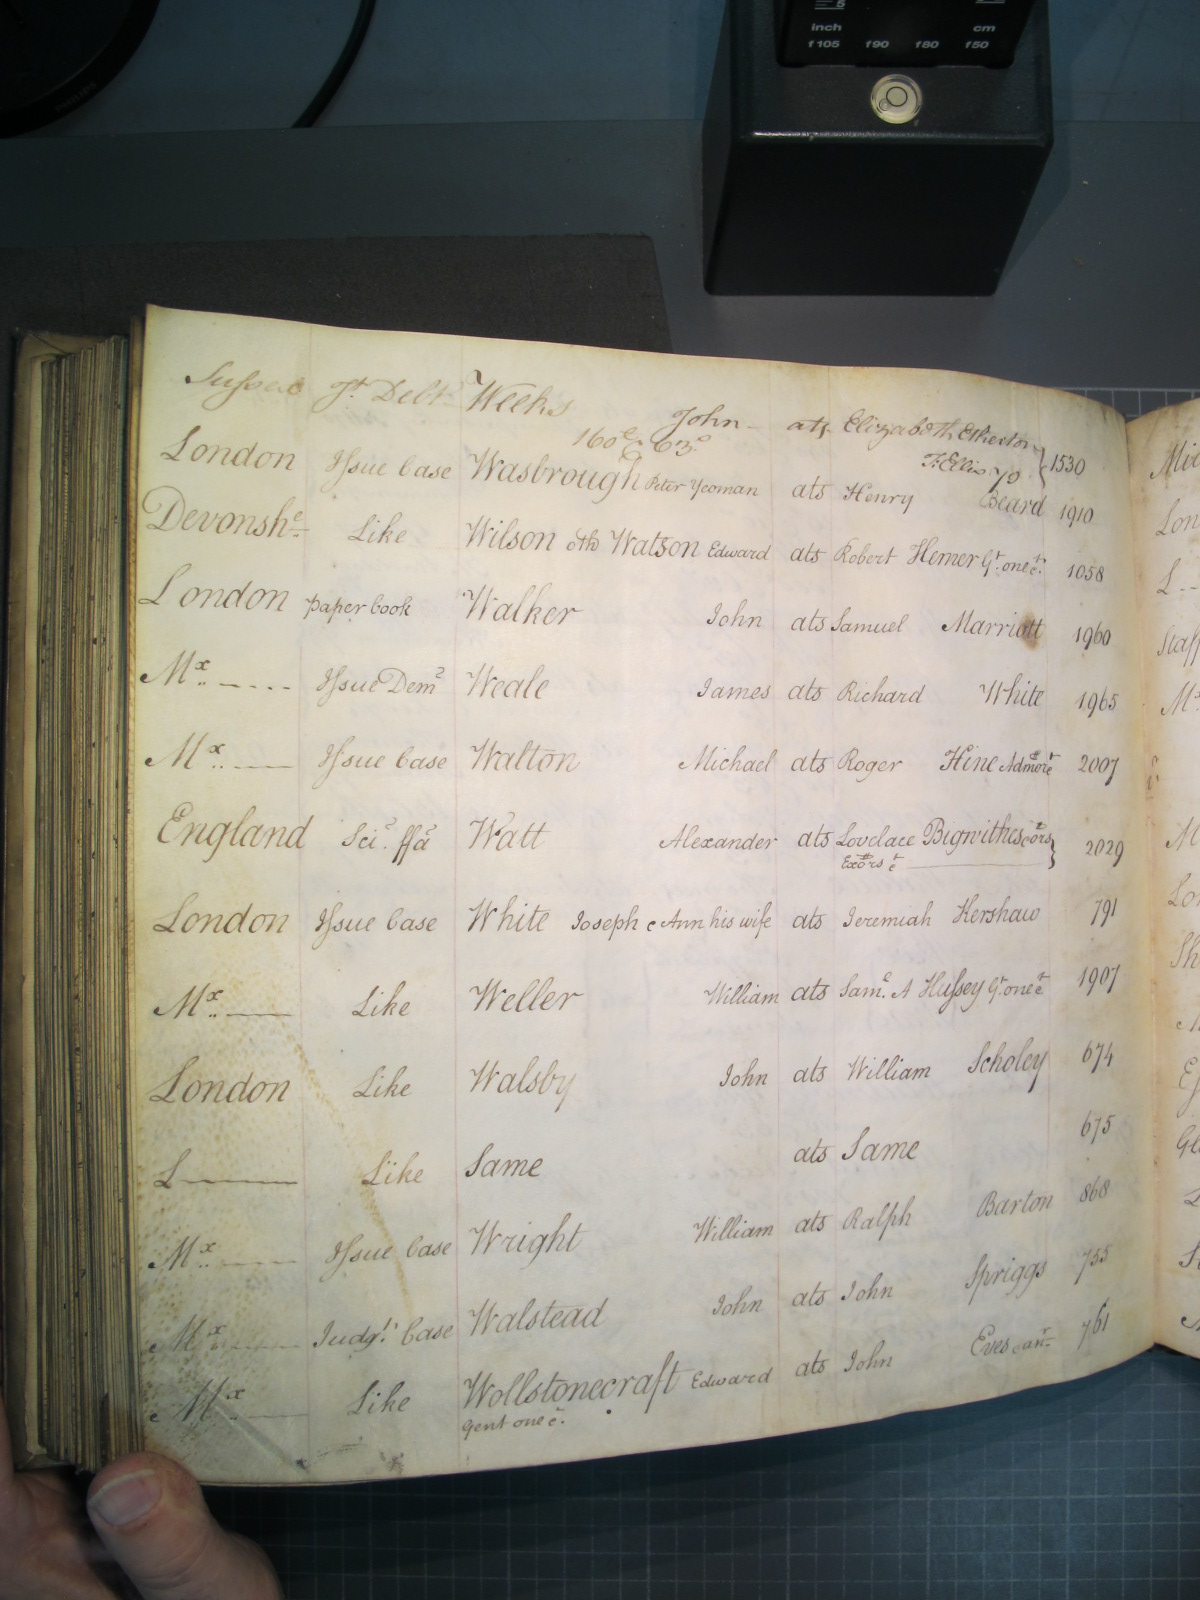 5
inch cm
f105 f90 f80 f50
PHILIPS
Sussex Jt. Debt Weeks John ats Elizabeth Etherton
160£ & 63s T. Ellis 1530
London Issue Case Wasbrough Peter Yeoman ats Henry Beard 1910
Devonshe. Like Wilson oth Watson Edward ats Robert Hemer Gt. one &c. 1058
London paper book Walker John ats Samuel Marriott 1960
Mx Issue Demr Weale James ats Richard White 1965
Mx Issue Case Walton Michael ats Roger Hine Admor &c 2007
England Sci. ffa Watt Alexander ats Lovelace Bigwither &ors 2029
Exors &c
London Issue Case White Joseph & Ann his wife ats Jeremiah Kershaw 791
Mx Like Weller William ats Saml. A Hussey Gt. one &c 1907
London Like Walsby John ats William Scholey 674
L Like Same ats Same 675
Mx Issue Case Wright William ats Ralph Barton 868
Mx Judgt. Case Walstead John ats John Spriggs 755
Mx Like Wollstonecraft Edward ats John Eves & anr 761
Gent one &c.